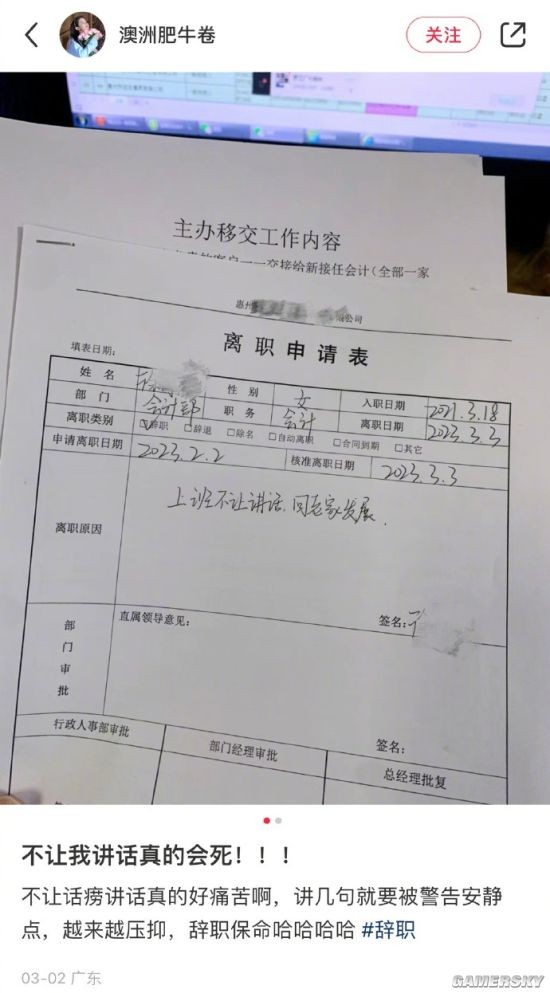 澳洲肥牛卷
关注
主办移交工作内容
一一交接给新接任会计(全部一家
惠州
公司
离职申请表
填表日期：
姓名
性别 女 入职日期 2021.3.18
部门 会计部 职务 会计 离职日期 2023.3.3
离职类别 ☑辞职 □辞退 □除名 □自动离职 □合同到期 □其它
申请离职日期 2023.2.2 核准离职日期 2023.3.3
离职原因
上班不让讲话,回老家发展.
签名：
部门审批
直属领导意见：
签名：
行政人事部审批 部门经理审批 总经理批复
不让我讲话真的会死！！！
不让话痨讲话真的好痛苦啊，讲几句就要被警告安静
点，越来越压抑，辞职保命哈哈哈哈 #辞职
03-02 广东
GAMERSKY